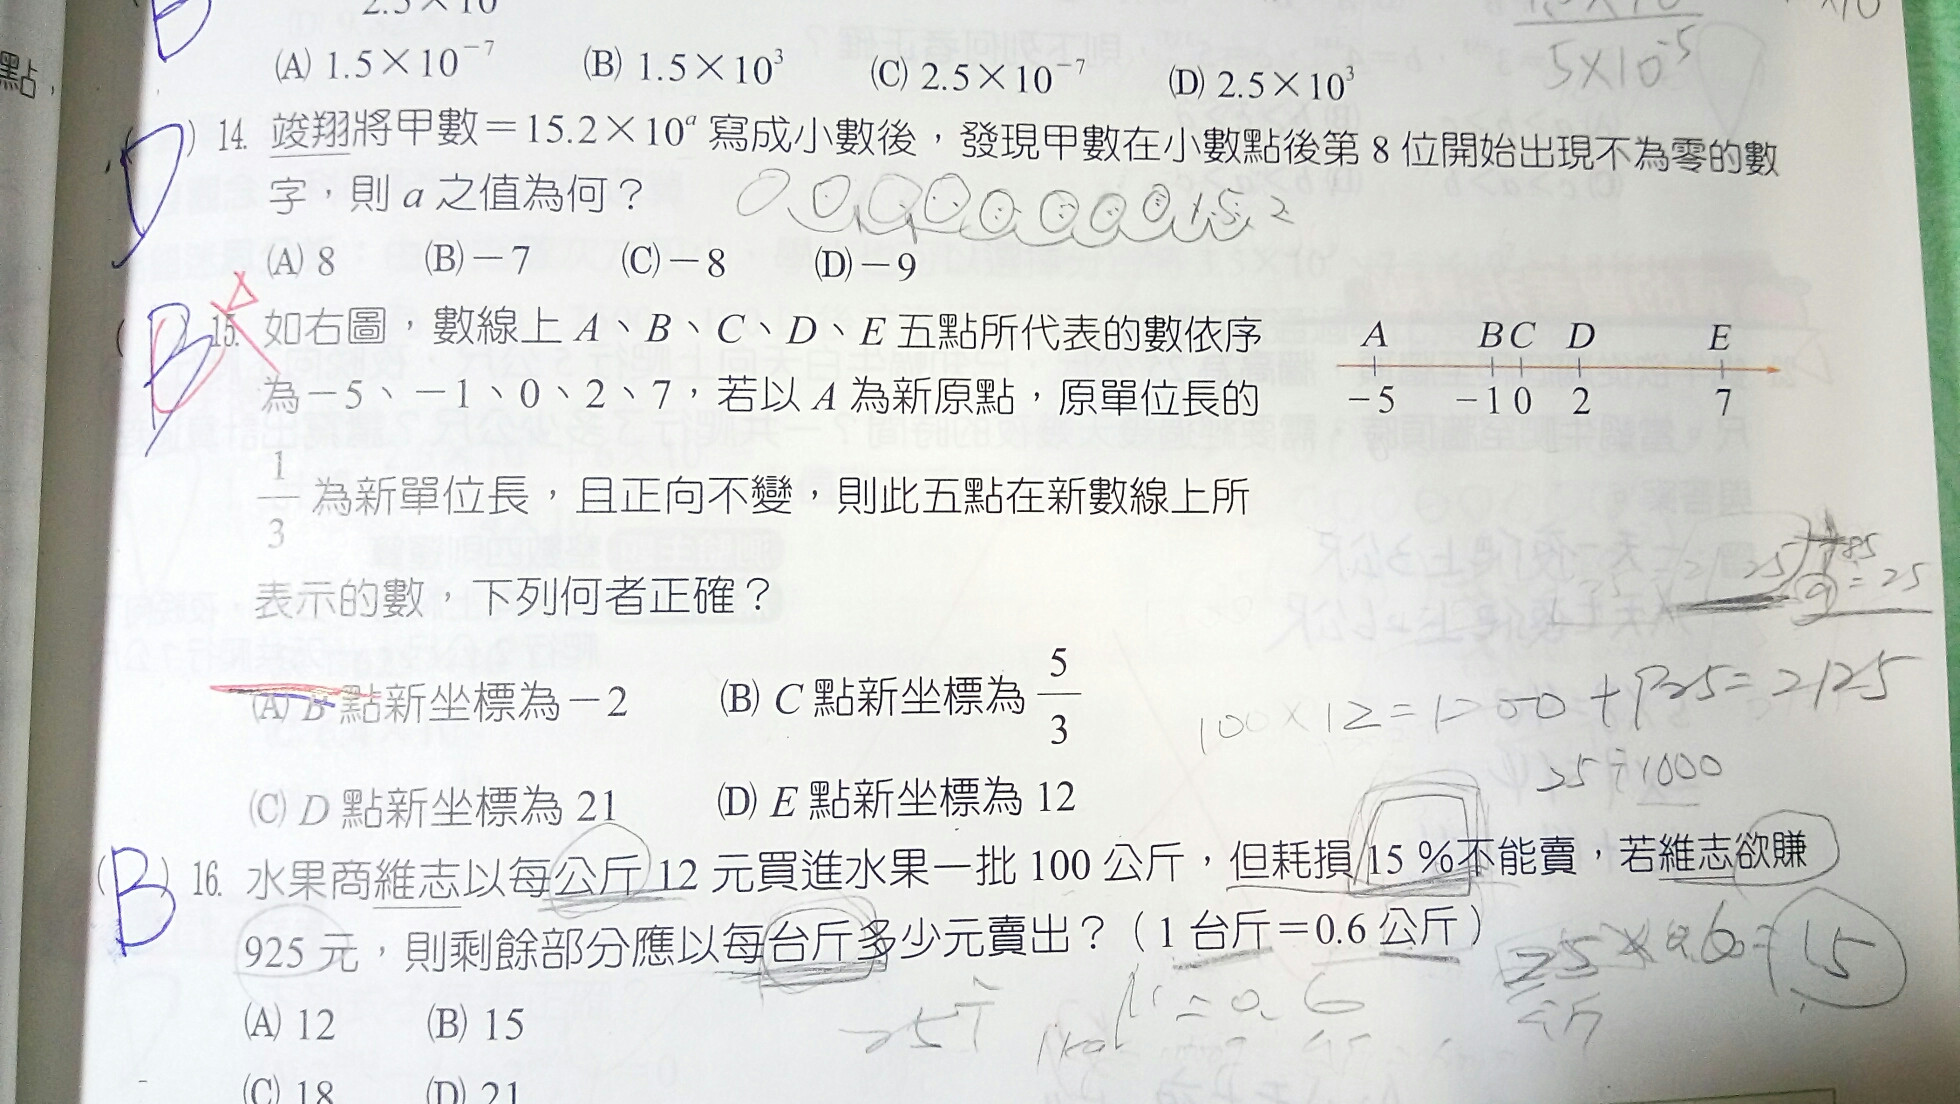 點，
(A) 1.5×10⁻⁷ (B) 1.5×10³ (C) 2.5×10⁻⁷ (D) 2.5×10³
5×10⁻⁵
D ) 14. 竣翔將甲數＝15.2×10ᵃ 寫成小數後，發現甲數在小數點後第 8 位開始出現不為零的數
字，則 a 之值為何？
(A) 8 (B)－7 (C)－8 (D)－9
( B 15. 如右圖，數線上 A、B、C、D、E 五點所代表的數依序
為－5、－1、0、2、7，若以 A 為新原點，原單位長的
1/3 為新單位長，且正向不變，則此五點在新數線上所
表示的數，下列何者正確？
A B C D E
－5 －1 0 2 7
(A) B 點新坐標為－2 (B) C 點新坐標為 5/3
(C) D 點新坐標為 21 (D) E 點新坐標為 12
100×12=1200+925=2125
25÷1000
( B ) 16. 水果商維志以每公斤 12 元買進水果一批 100 公斤，但耗損 15 %不能賣，若維志欲賺
925 元，則剩餘部分應以每台斤多少元賣出？（1 台斤＝0.6 公斤）
25×0.6=15
(A) 12 (B) 15
(C) 18 (D) 21